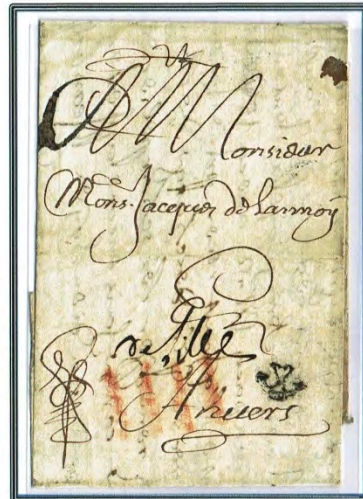 A Monsieur
Mons. Jacques de Lannoy
de Lille
Anvers